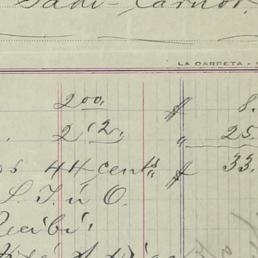 Sadi-Carnot.
LA CARPETA
2.00. $ 8.
2.12. " 25.
os 44 cents " $ 33.
S. I. ú O.
Recibí.